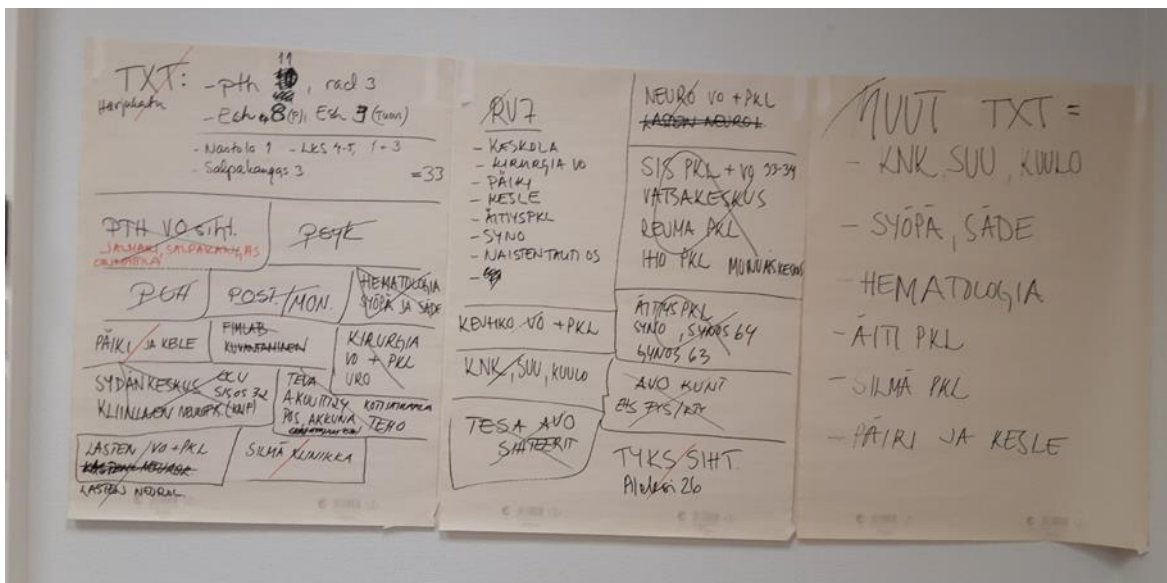 TXT: - pth 11, rad 3
Harjukatu
- Esh 8(P), Esh 3 (Tuom)
- Nastola 1 - LKS 4-5, 1-3
- Salpakangas 3 =33
PTH VO siht.
JALKARI, SALPAKANGAS
PSYK
PGH
POST./MON.
HEMATOLOGIA
SYÖPÄ JA SÄDE
PÄIKI JA KESLE
FIMLAB
KUVANTAMINEN
KIRURGIA
VO + PKL
URO
SYDÄNKESKUS CCU
SISOS 32
KLIININEN NEUROFYS (KNF)
TEVA
AKUUTTI24 KOTISAIRAALA
POS, AKKUNA TEHO
LASTEN VO+PKL
LASTEN NEUROL.
SILMÄ KLINIKKA
RV7
- KESKOLA
- KIRURGIA VO
- PÄIKI
- KESLE
- ÄITIYSPKL
- SYNO
- NAISTENTAUTI OS
-
KEUHKO VO + PKL
KNK, SUU, KUULO
TESA AVO
SIHTEERIT
NEURO VO + PKL
LASTEN NEUROL
SIS PKL + VO 33-34
VATSAKESKUS
REUMA PKL
IHO PKL MUNUAISKESKUS
ÄITIYSPKL
SYNO, SYNOS 64
GYNOS 63
AVO KUNT
TYKS SIHT.
Aleksi 26
MUUT TXT =
- KNK, SUU, KUULO
- SYÖPÄ, SÄDE
- HEMATOLOGIA
- ÄITI PKL
- SILMÄ PKL
- PÄIKI JA KESLE